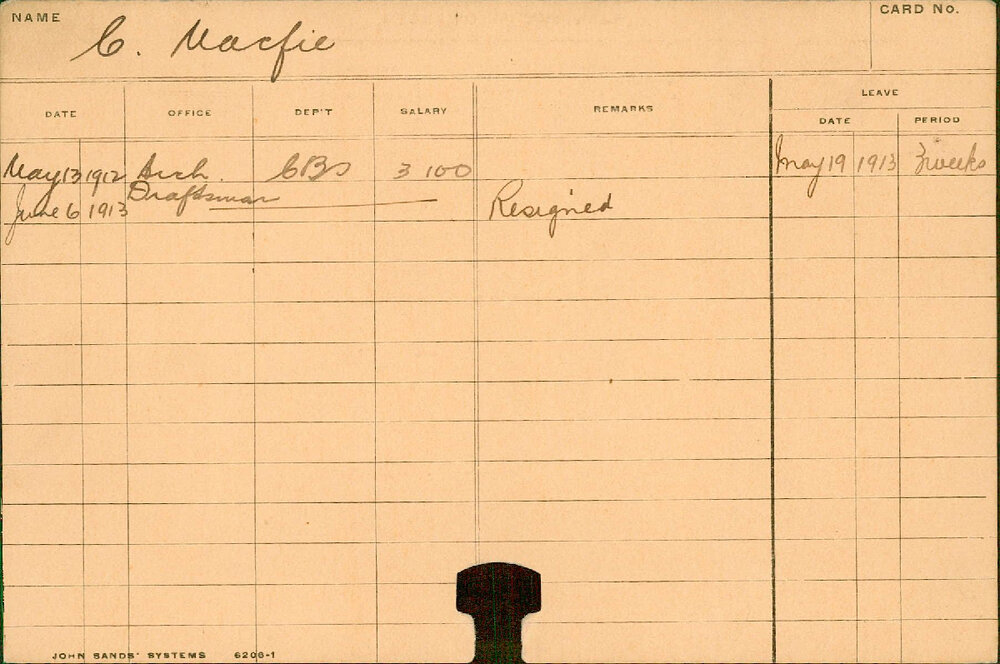 NAME
C. Macfie
CARD No.
DATE OFFICE DEP'T SALARY REMARKS LEAVE
DATE PERIOD
May 13 1912 Arch. CBS 3 100 May 19 1913 3 weeks
Draftsman
June 6 1913 Resigned
JOHN SANDS' SYSTEMS 6206-1